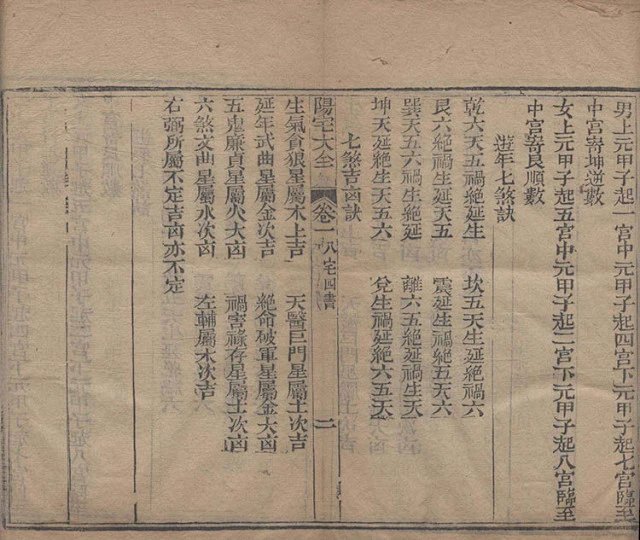 男上元甲子起一宮中元甲子起四宮下元甲子起七宮臨至
中宮寄坤逆數
女上元甲子起五宮中元甲子起二宮下元甲子起八宮臨至
中宮寄艮順數
遊年七煞訣
乾六天五禍絶延生　坎五天生延絶禍六
艮六絶禍生延天五　震延生禍絶五天六
巽天五六禍生絶延　離六五絶延禍生天
坤天延絶生禍五六　兌生禍延絶六五天
七煞吉凶訣
陽宅大全　卷一　八宅四書　二
生氣貪狼星屬木上吉　天醫巨門星屬土次吉
延年武曲星屬金次吉　絶命破軍星屬金大凶
五鬼廉貞星屬火大凶　禍害祿存星屬土次凶
六煞文曲星屬水次凶　左輔屬木次吉
右弼所屬不定吉凶亦不定